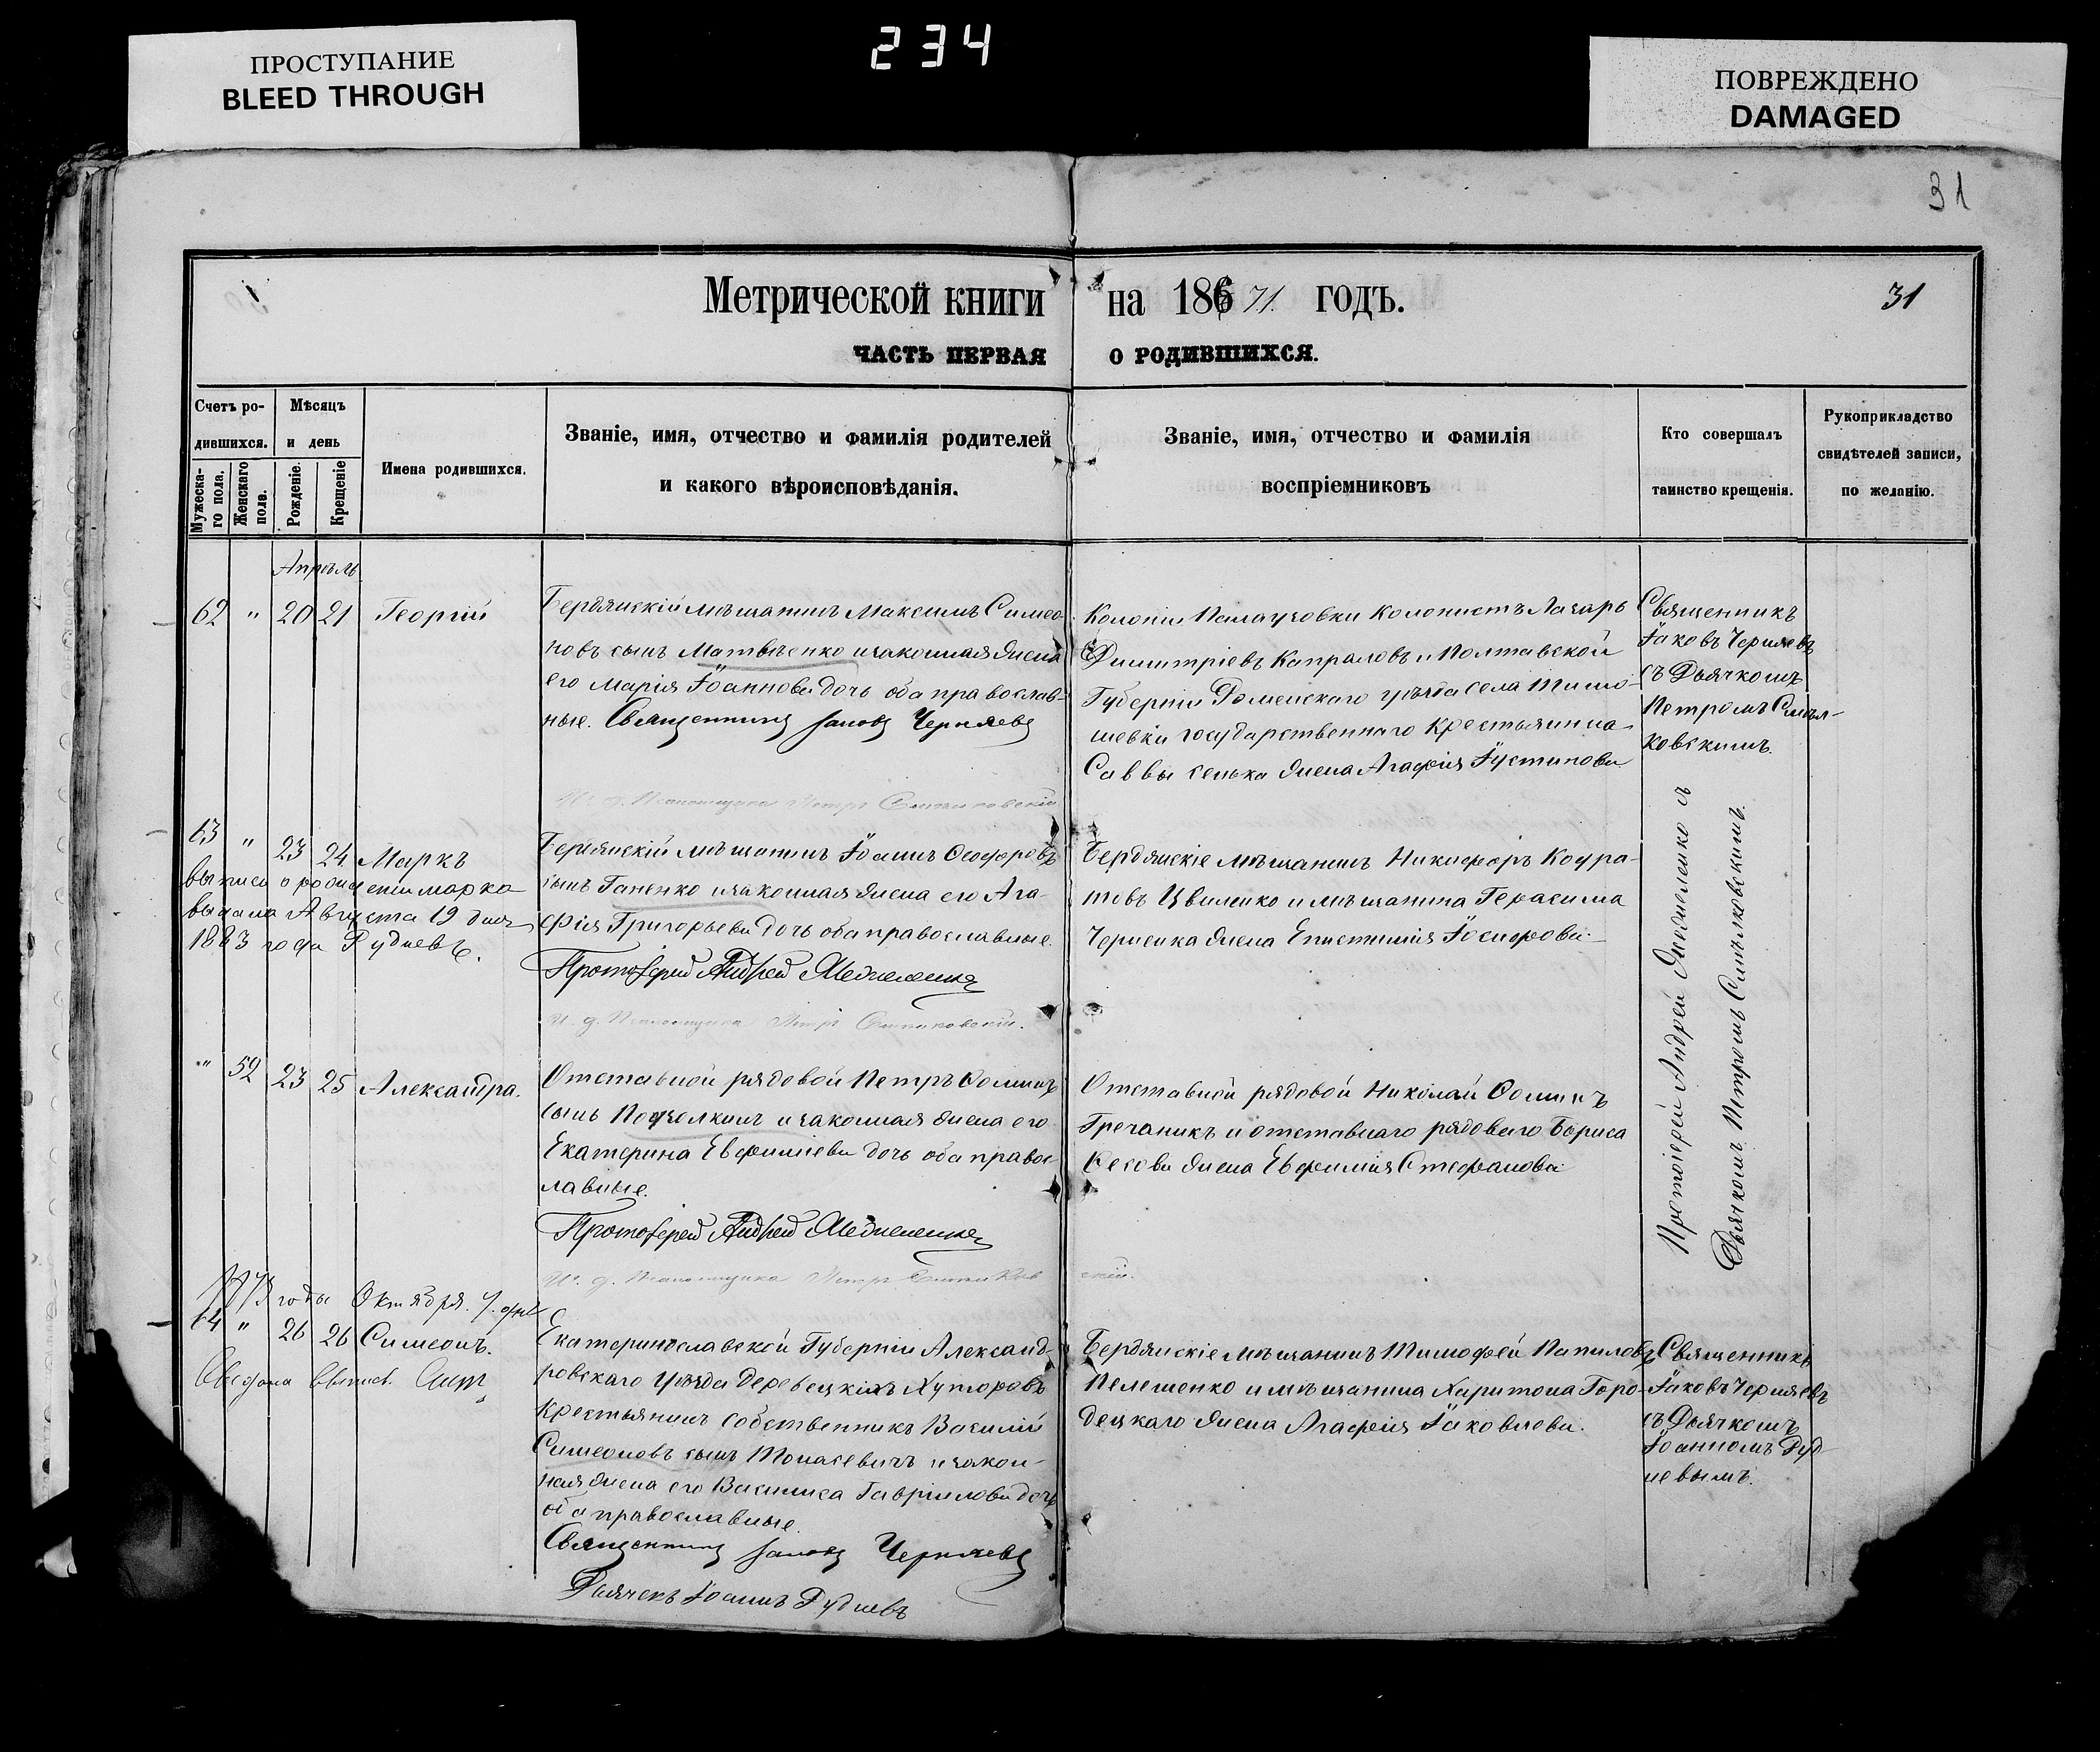 234
ПРОСТУПАНИЕ
BLEED THROUGH
ПОВРЕЖДЕНО
DAMAGED
31
Метрической книги на 186 71. годъ.
31
ЧАСТЬ ПЕРВАЯ О РОДИВШИХСЯ.
Счетъ ро-
дившихся.
Мужеска-
го пола.
Женскаго
пола.
Мѣсяцъ
и день
Рожденіе.
Крещеніе
Имена родившихся.
Званіе, имя, отчество и фамилія родителей
и какого вѣроисповѣданія.
Званіе, имя, отчество и фамилія
воспріемниковъ
Кто совершалъ
таинство крещенія.
Рукоприкладство
свидѣтелей записи,
по желанію.
Апрѣль
62 " 20 21 Георгій
Бердянскій мѣщанинъ Максимъ Симео-
новъ сынъ Матвѣенко и законная жена
его Марія Іоаннова дочь оба православ-
ные. Священникъ Іаковъ Черняевъ
Колоніи колонистъ Лазарь
Димитріевъ Капраловъ и Полтавской
Губерніи Роменскаго уѣзда села Тимо-
шевки государственнаго крестьянина
Саввы сенька жена Агафія Іустинова
Священникъ
Іаковъ Черняевъ
съ Дьячкомъ
Петромъ Синьл-
ковскимъ.
И. д. Псаломщика Петръ
63 " 23 24 Маркъ
выпись о рождении марка
выдана Августа 19 дня
1883 года Рудневъ.
Бердянскій мѣщанинъ Іоаннъ Ѳеодоровъ
сынъ Ганенко и законная жена его Ага-
фія Григорьева дочь оба православные.
Протоіерей Андрей
Бердянскіе мѣщанинъ Никифоръ Кодра-
товъ Цвиленко и мѣщанина Герасима
Черненка жена Епистимія Іосифова
И. д. Псаломщика Петръ
" 52 23 25 Александра.
Отставной рядовой Петръ Ѳоминъ
сынъ Подчолкинъ и законная жена его
Екатерина Евфиміева дочь оба правос-
лавные.
Протоіерей Андрей
Отставной рядовой Николай Ѳоминъ
Гречаникъ и отставнаго рядоваго Бориса
жена Евфимія Стефанова
Протоіерей Андрей съ
Дьячкомъ Петромъ Синьлковскимъ.
И. д. Псаломщика Петръ
года Октября 7. дня
64 " 26 26 Симеонъ.
выпись
Екатеринославской Губерніи Александ-
ровскаго уѣзда Деревецкихъ Хуторовъ
Крестьянинъ собственникъ Василій
Симеоновъ сынъ Томасевичъ и закон-
ная жена его Васса Гавріилова дочь
оба православные.
Священникъ Іаковъ Черняевъ
Дьячекъ Іоаннъ Рудневъ
Бердянскіе мѣщанинъ Тимофей
Пелешенко и мѣщанина Харитона Горо-
децкаго жена Агафія Іаковлева.
Священникъ
Іаковъ Черняевъ
съ Дьячкомъ
Іоанномъ Руд-
невымъ.